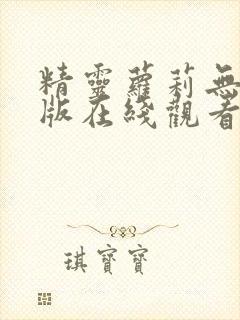 精靈蘿莉無
版在綫觀看
琪寶寶